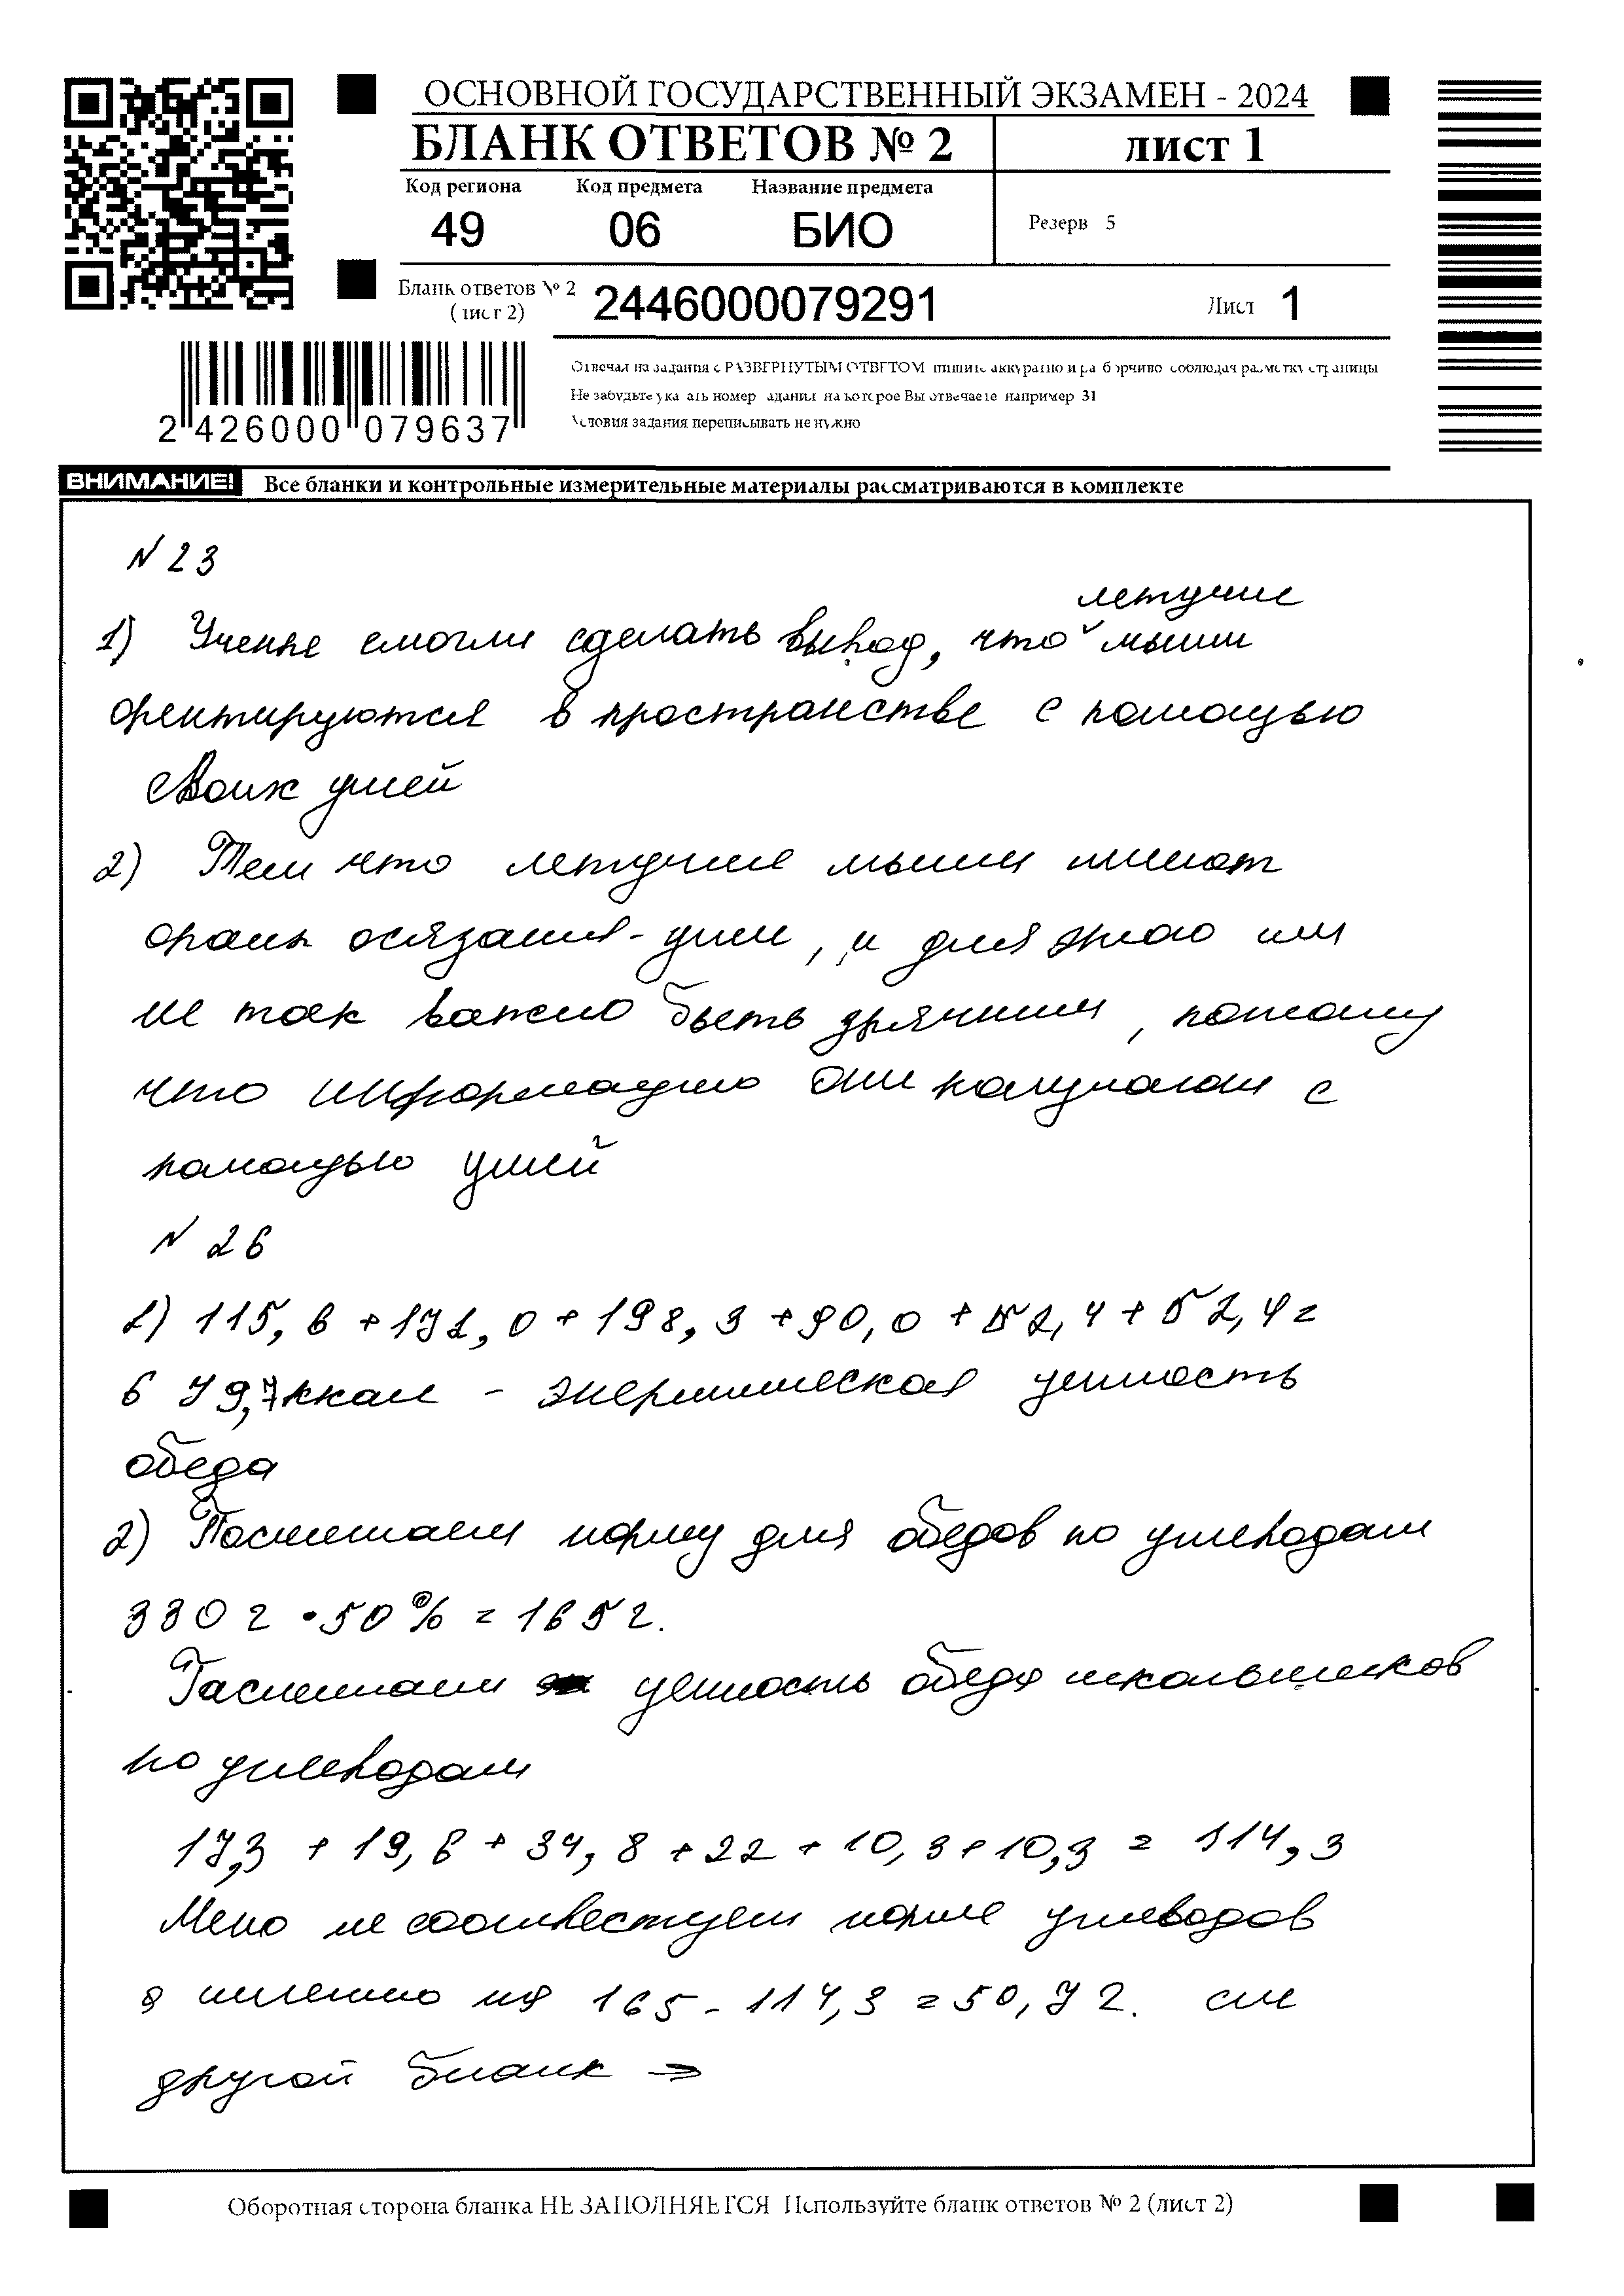 ОСНОВНОЙ ГОСУДАРСТВЕННЫЙ ЭКЗАМЕН - 2024
БЛАНК ОТВЕТОВ № 2
лист 1
Код региона Код предмета Название предмета
49 06 БИО
Резерв 5
Бланк ответов № 2
(лист 2)
2446000079291
Лист 1
2 426000 079637
Отвечая на задания с РАЗВЕРНУТЫМ ОТВЕТОМ пишите аккуратно и разборчиво соблюдая разметку страницы
Не забудьте указать номер задания на которое Вы отвечаете например 31
Условия задания переписывать не нужно
ВНИМАНИЕ! Все бланки и контрольные измерительные материалы рассматриваются в комплекте
N 23
летучие
1) Ученые смогли сделать вывод, что ˅ мыши
орентируются в пространстве с помощью
своих ушей
2) Тем что летучие мыши имеют
органы осязания - уши, и для этого им
не так важно быть зрячими, потому
что информацию они получают с
помощью ушей
N 26
1) 115,6 + 171,0 + 198,3 + 90,0 + 52,4 + 52,4 =
679,7 ккал - энергитическая ценность
обеда
2) Посчитаем норму для обедов по углеводам
330 г • 50% = 165 г.
Расчитаем ценность обеда школьников
по углеводам
17,3 + 19,6 + 34,8 + 22 + 10,3 + 10,3 = 114,3
Меню не соотвествует норме углеводов
а именно на 165 - 114,3 = 50,7 г. см
другой бланк →
Оборотная сторона бланка НЕ ЗАПОЛНЯЕТСЯ Используйте бланк ответов № 2 (лист 2)